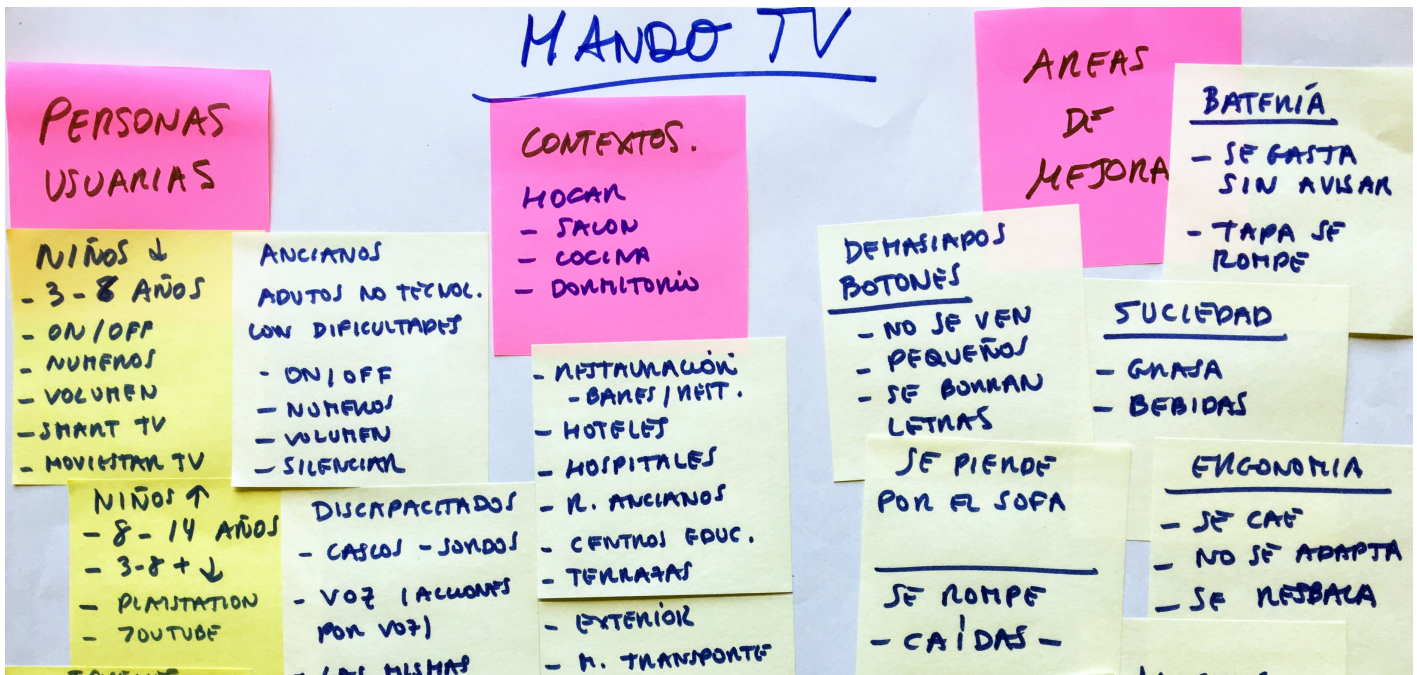 MANDO TV
PERSONAS
USUARIAS
NIÑOS ↓
- 3-8 AÑOS
- ON/OFF
- NUMEROS
- VOLUMEN
- SMART TV
- MOVIESTAR TV
NIÑOS ↑
- 8-14 AÑOS
- 3-8 + ↓
- PLAYSTATION
- YOUTUBE
ANCIANOS
ADUTOS NO TECNOL.
CON DIFICULTADES
- ON/OFF
- NUMEROS
- VOLUMEN
- SILENCIAR
DISCAPACITADOS
- CASCOS - SORDOS
- VOZ (ACCIONES
POR VOZ)
- LAS MISMAS
CONTEXTOS.
HOGAR
- SALON
- COCINA
- DORMITORIO
- RESTAURACIÓN
- BARES/REST.
- HOTELES
- HOSPITALES
- R. ANCIANOS
- CENTROS EDUC.
- TERRAZAS
- EXTERIOR
- M. TRANSPORTE
AREAS
DE
MEJORA
BATERÍA
- SE GASTA
SIN AVISAR
- TAPA SE
ROMPE
DEMASIADOS
BOTONES
- NO SE VEN
- PEQUEÑOS
- SE BORRAN
LETRAS
SUCIEDAD
- GRASA
- BEBIDAS
SE PIERDE
POR EL SOFA
SE ROMPE
- CAÍDAS -
ERGONOMIA
- SE CAE
- NO SE ADAPTA
- SE RESBALA